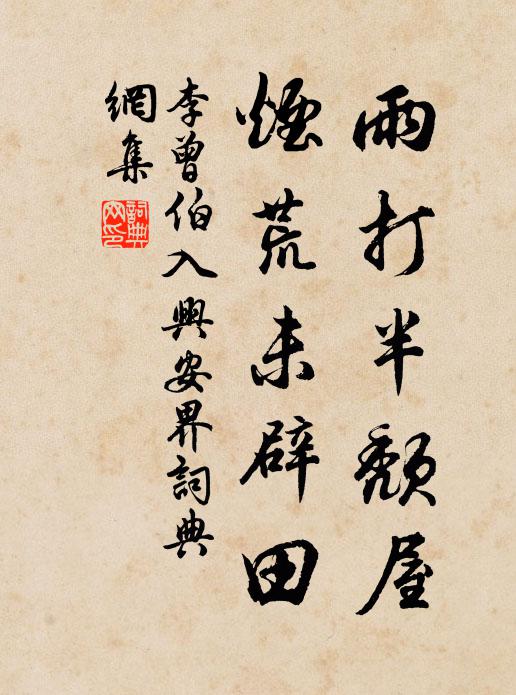 雨打半頹屋
煙荒未辟田
李曾伯入興安界詞典
網集
詞典
網印